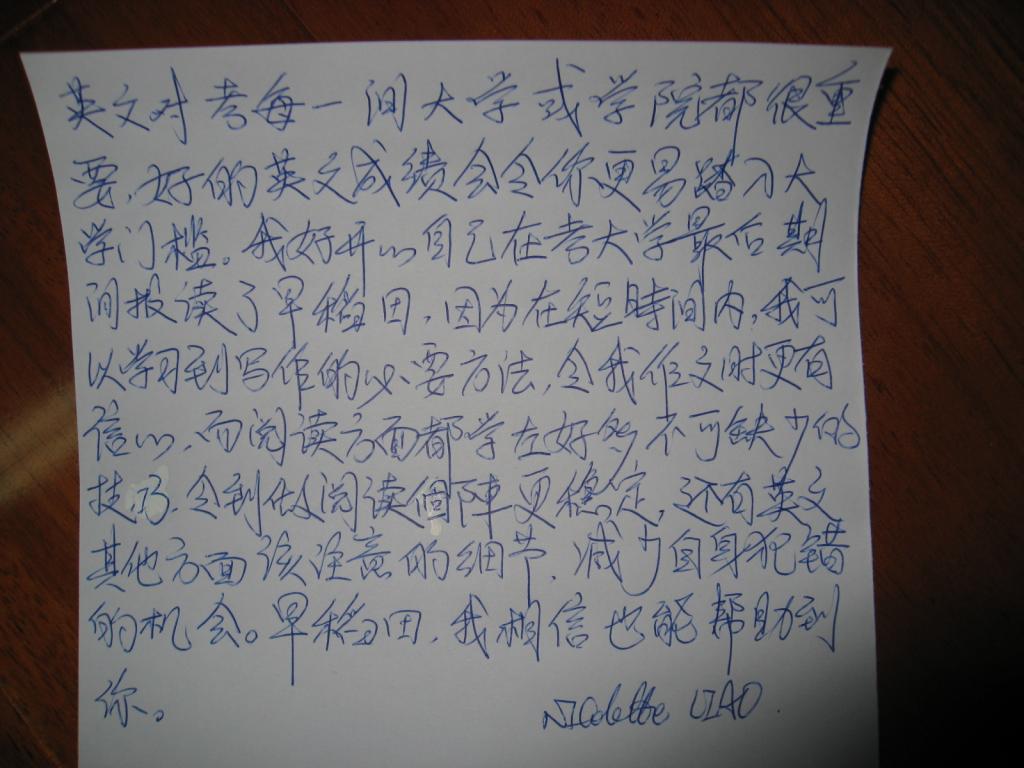 英文对考每一间大学或学院都很重
要,好的英文成绩会令你更易踏入大
学门槛。我好开心自己在考大学最后期
间报读了早稻田,因为在短時间内,我可
以学习到写作的必要方法,令我作文时更有
信心,而阅读方面都学左好多不可缺少的
技巧,令到做阅读個陣更稳定,还有英文
其他方面该注意的细节,减少自身犯错
的机会。早稻田,我相信也能帮助到
你。
Nicolette LIAO